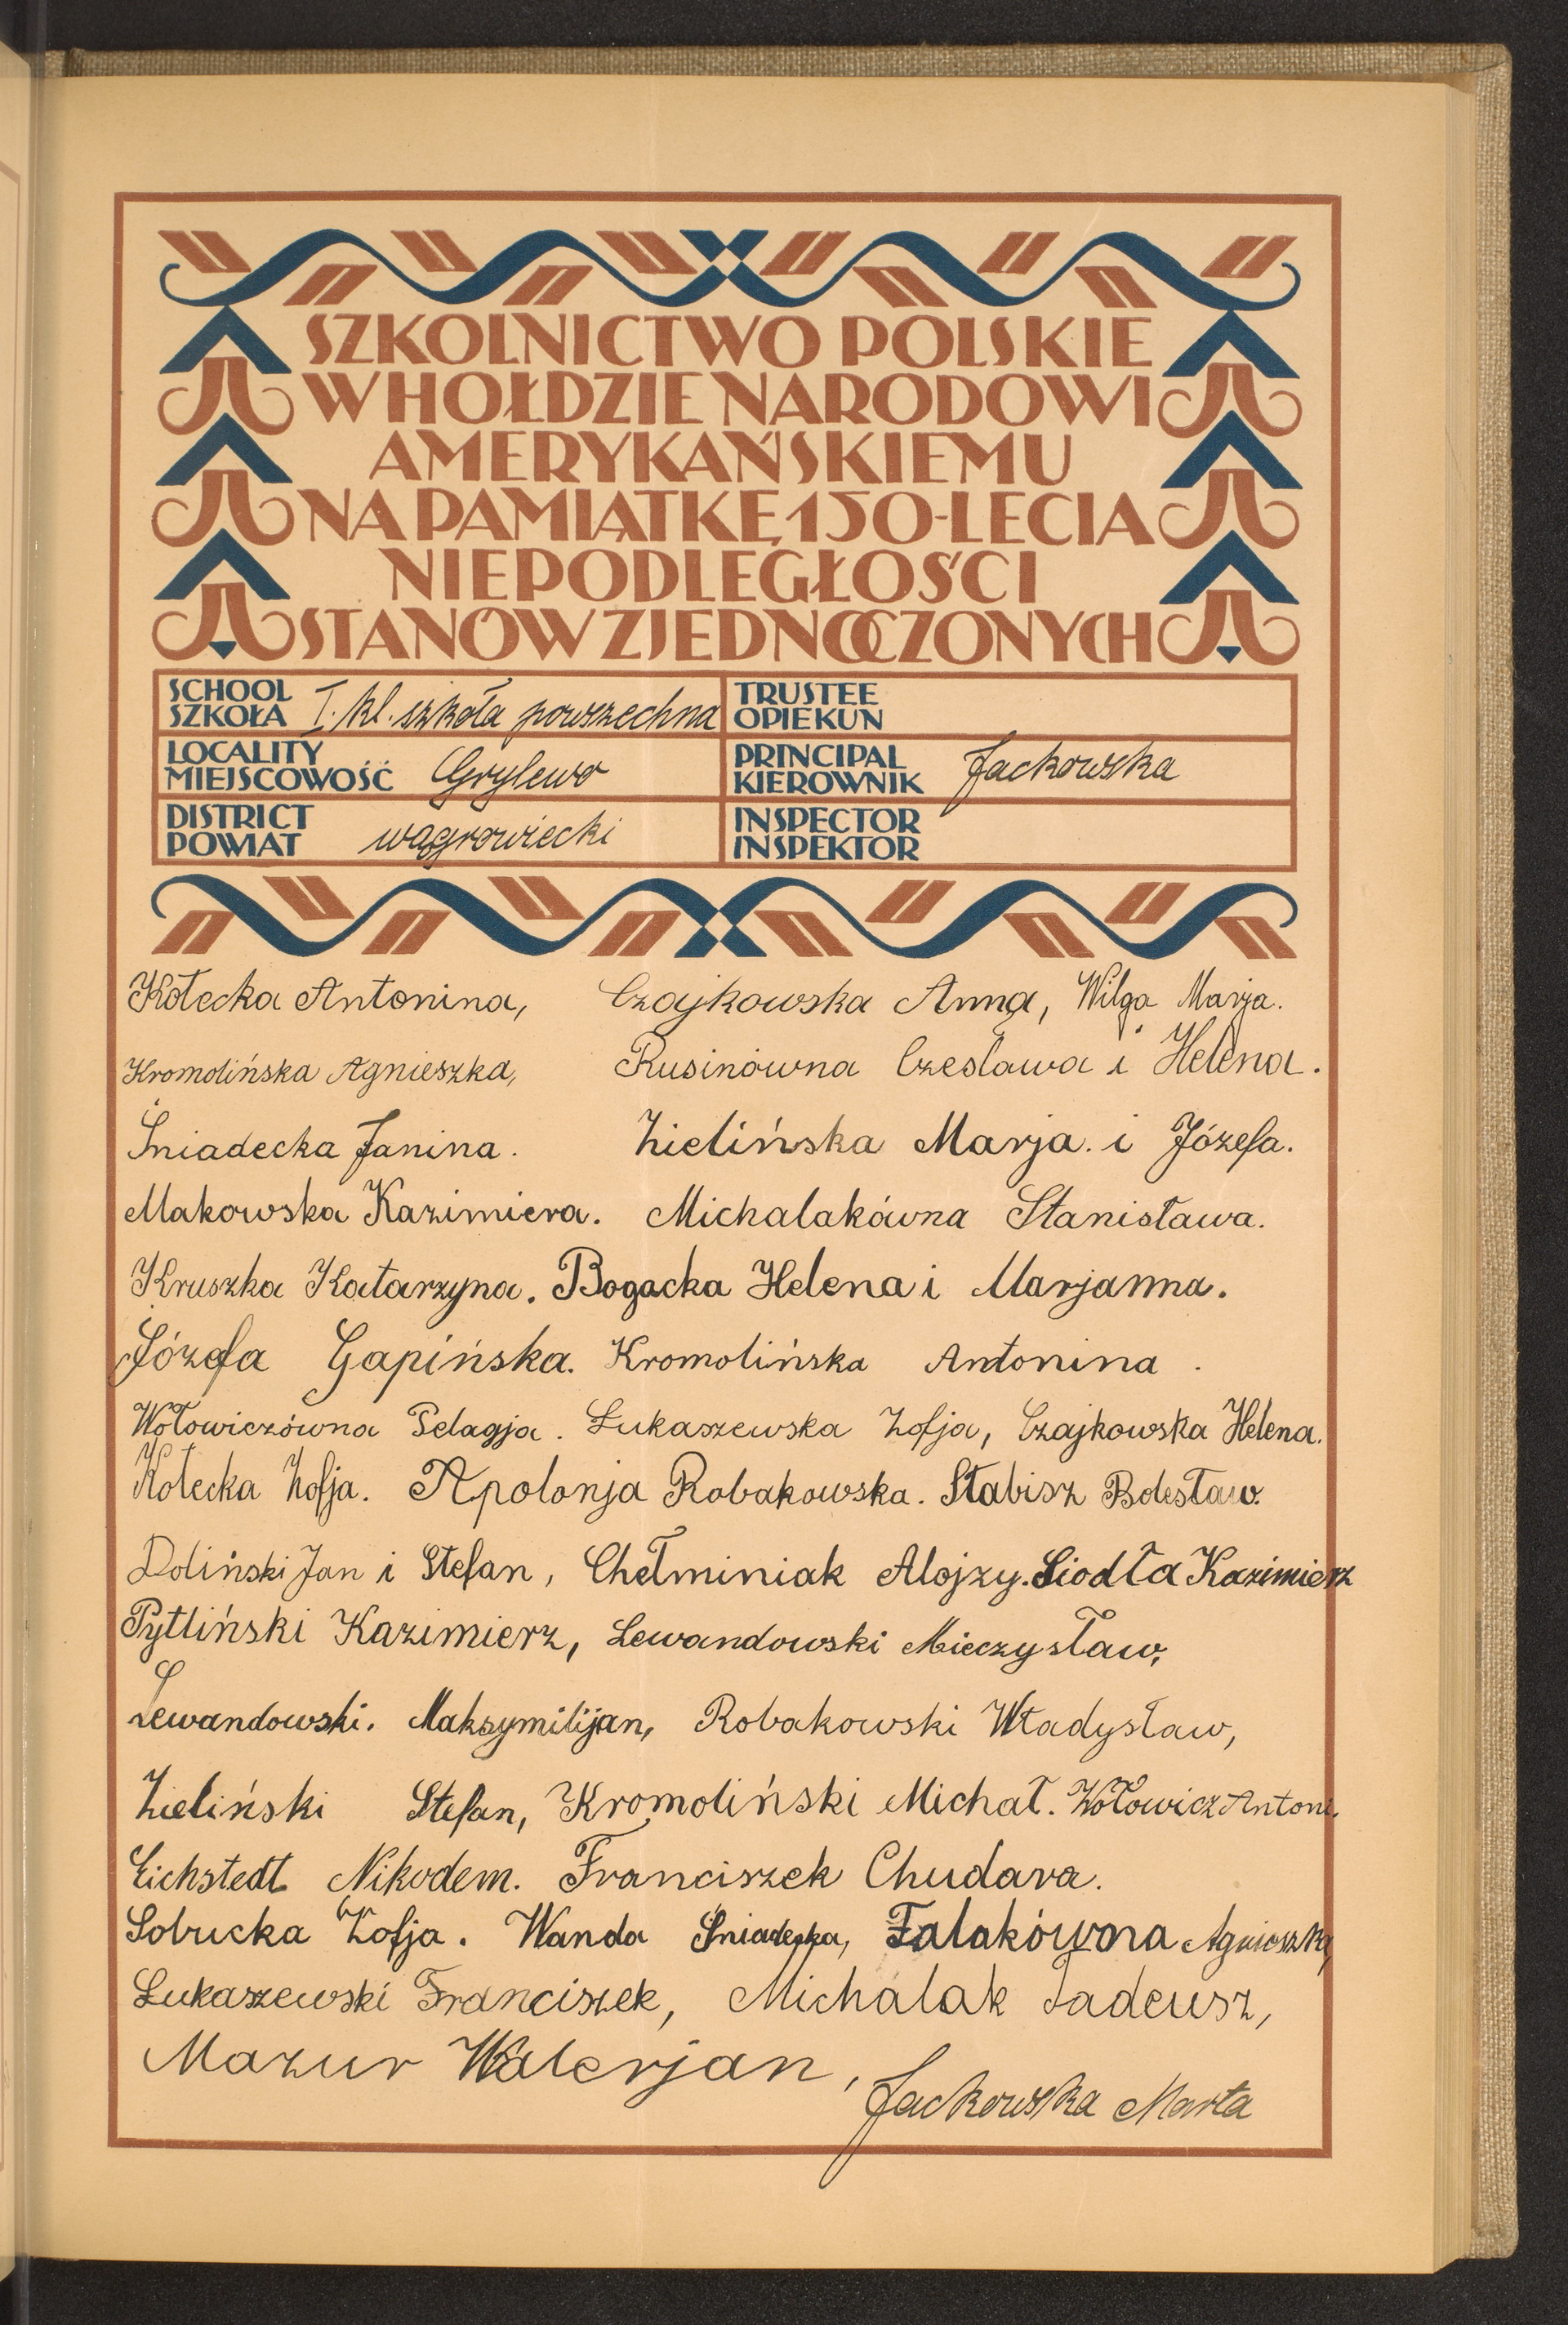 SZKOLNICTWO POLSKIE
W HOŁDZIE NARODOWI
AMERYKAŃSKIEMU
NA PAMIĄTKĘ 150-LECIA
NIEPODLEGŁOŚCI
STANÓW ZJEDNOCZONYCH
SCHOOL
SZKOŁA I. kl. szkoła powszechna
TRUSTEE
OPIEKUN
LOCALITY
MIEJSCOWOŚĆ Grylewo
PRINCIPAL
KIEROWNIK Jackowska
DISTRICT
POWIAT wągrowiecki
INSPECTOR
INSPEKTOR
Kołecka Antonina, Czajkowska Anna, Wilga Marja.
Kromolińska Agnieszka, Rusinówna Czesława i Helena.
Śniadecka Janina. Zielińska Marja. i Józefa.
Makowska Kazimiera. Michalakówna Stanisława.
Kruszka Katarzyna. Bogacka Helena i Marjanna.
Józefa Gapińska. Kromolińska Antonina.
Wołowiczówna Pelagja. Łukaszewska Zofja, Czajkowska Helena.
Kołecka Zofja. Apolonja Robakowska. Stabisz Bolesław.
Doliński Jan i Stefan, Chełminiak Alojzy. Siodła Kazimierz
Pytliński Kazimierz, Lewandowski Mieczysław,
Lewandowski. Maksymilijan, Robakowski Władysław,
Zieliński Stefan, Kromoliński Michał. Wołowicz Antoni.
Eichstedt Nikodem. Franciszek Chudara.
Sobucka Zofja. Wanda Śniadecka, Falakówna Agnieszka,
Łukaszewski Franciszek, Michalak Tadeusz,
Mazur Walerjan, Jackowska Marta